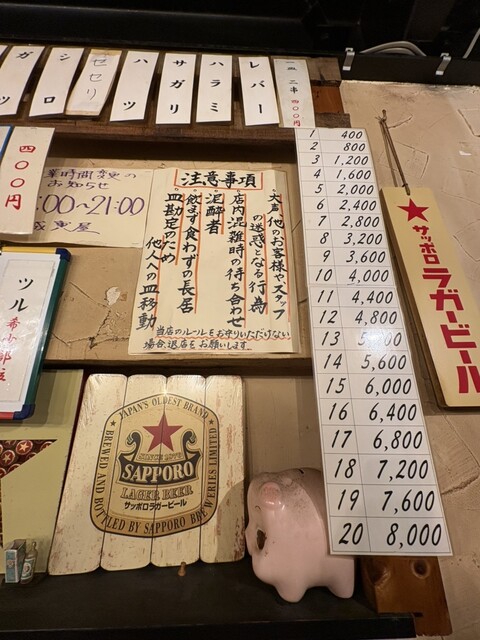 一皿 二串 四〇〇円
レバー
ハラミ
サガリ
ハツ
セセリ
シロ
ガツ
四〇〇円
業時間変更の
お知らせ
:00~21:00
注意事項
大声、他のお客様やスタッフ
の迷惑となる行為
店内混雑時の待ち合わせ
泥酔者
飲まず食わずの長居
皿勘定のため
他人との皿移動
当店のルールをお守りいただけない
場合、退店をお願いします。
ツル
1 400
2 800
3 1,200
4 1,600
5 2,000
6 2,400
7 2,800
8 3,200
9 3,600
10 4,000
11 4,400
12 4,800
13
14 5,600
15 6,000
16 6,400
17 6,800
18 7,200
19 7,600
20 8,000
サッポロ
ラガービール
JAPAN'S OLDEST BRAND
SINCE 1876
SAPPORO
LAGER BEER
サッポロラガービール
BREWED AND BOTTLED BY SAPPORO BREWERIES LIMITED